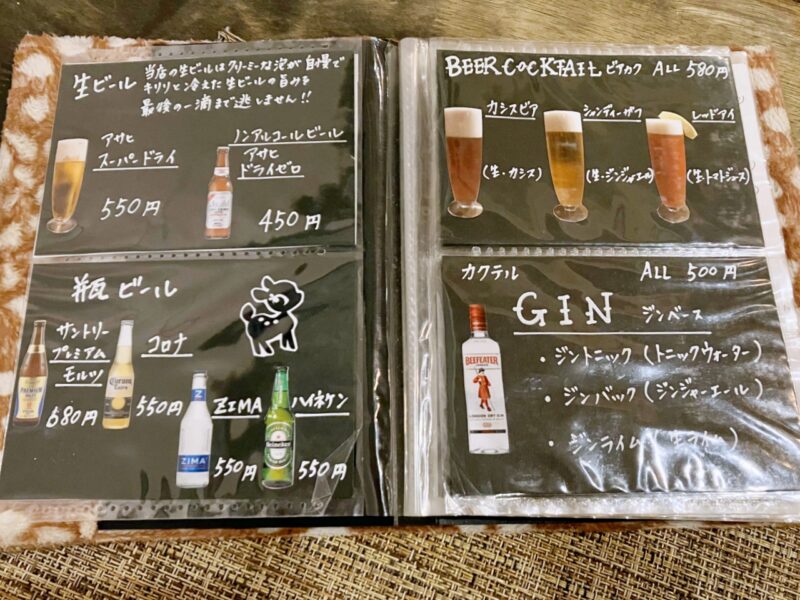 生ビール
当店の生ビールはクリーミーな泡が自慢で
キリリと冷えた生ビールの旨みを
最後の一滴まで逃しません!!
アサヒ
スーパードライ
550円
ノンアルコールビール
アサヒ
ドライゼロ
450円
瓶ビール
サントリー
プレミアム
モルツ
680円
コロナ
550円
ZIMA
550円
ハイネケン
550円
PREMIUM
Corona
Extra
ZIMA
Heineken
BEER COCKTAIL ビアカク ALL 580円
カシスビア
(生・カシス)
シャンディーガフ
(生・ジンジャエール)
レッドアイ
(生・トマトジュース)
カクテル ALL 500円
GIN ジンベース
・ジントニック(トニックウォーター)
・ジンバック(ジンジャーエール)
・ジンライム(生ライム)
BEEFEATER
LONDON DRY GIN